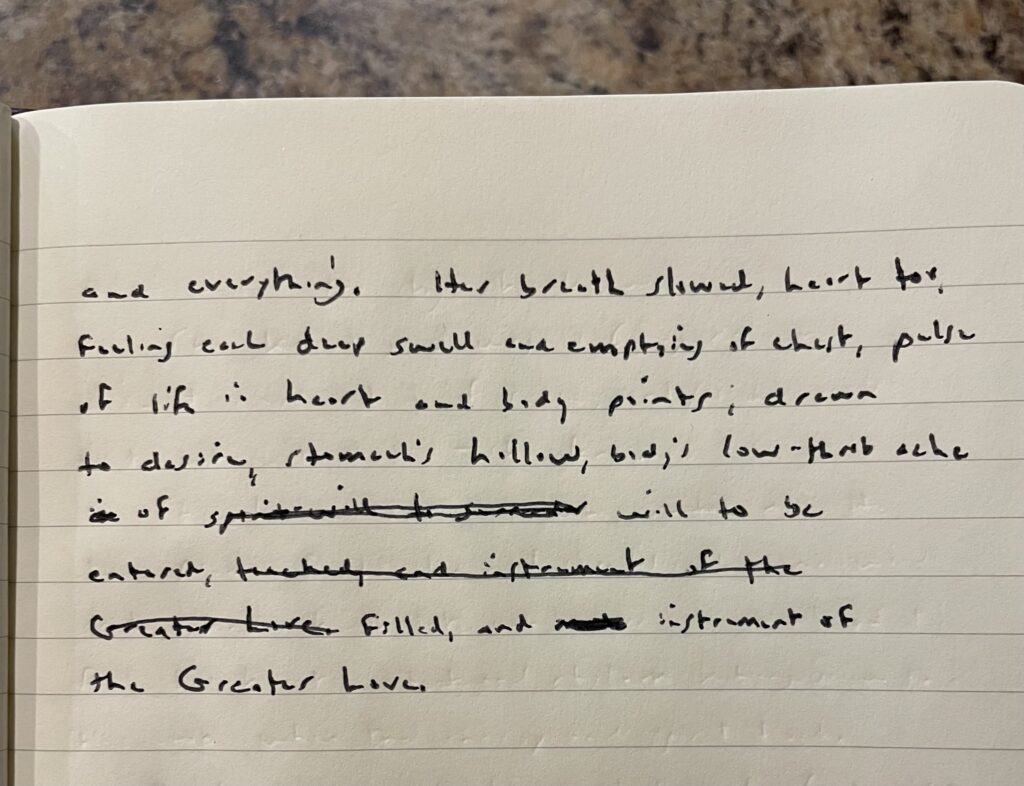 and everything. Her breath slowed, heart too,
feeling each deep swell and emptying of chest, pulse
of life in heart and body points; drawn
to desire, stomach's hollow, body's low-throb ache
of will to be
entered, touched, and instrument of the
Greater Love. filled, and instrument of
the Greater Love.